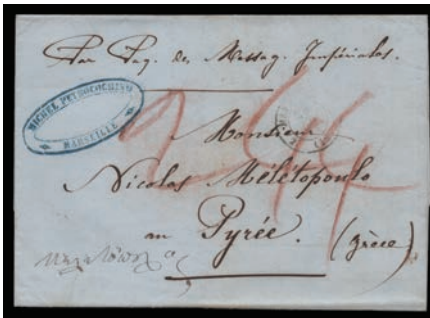 Par Paq. des Messag. Impériales.
MICHEL PETROCOCHINO
MARSEILLE
Monsieur
Nicolas Mélétopoulo
au Pyrée.
(Grèce)